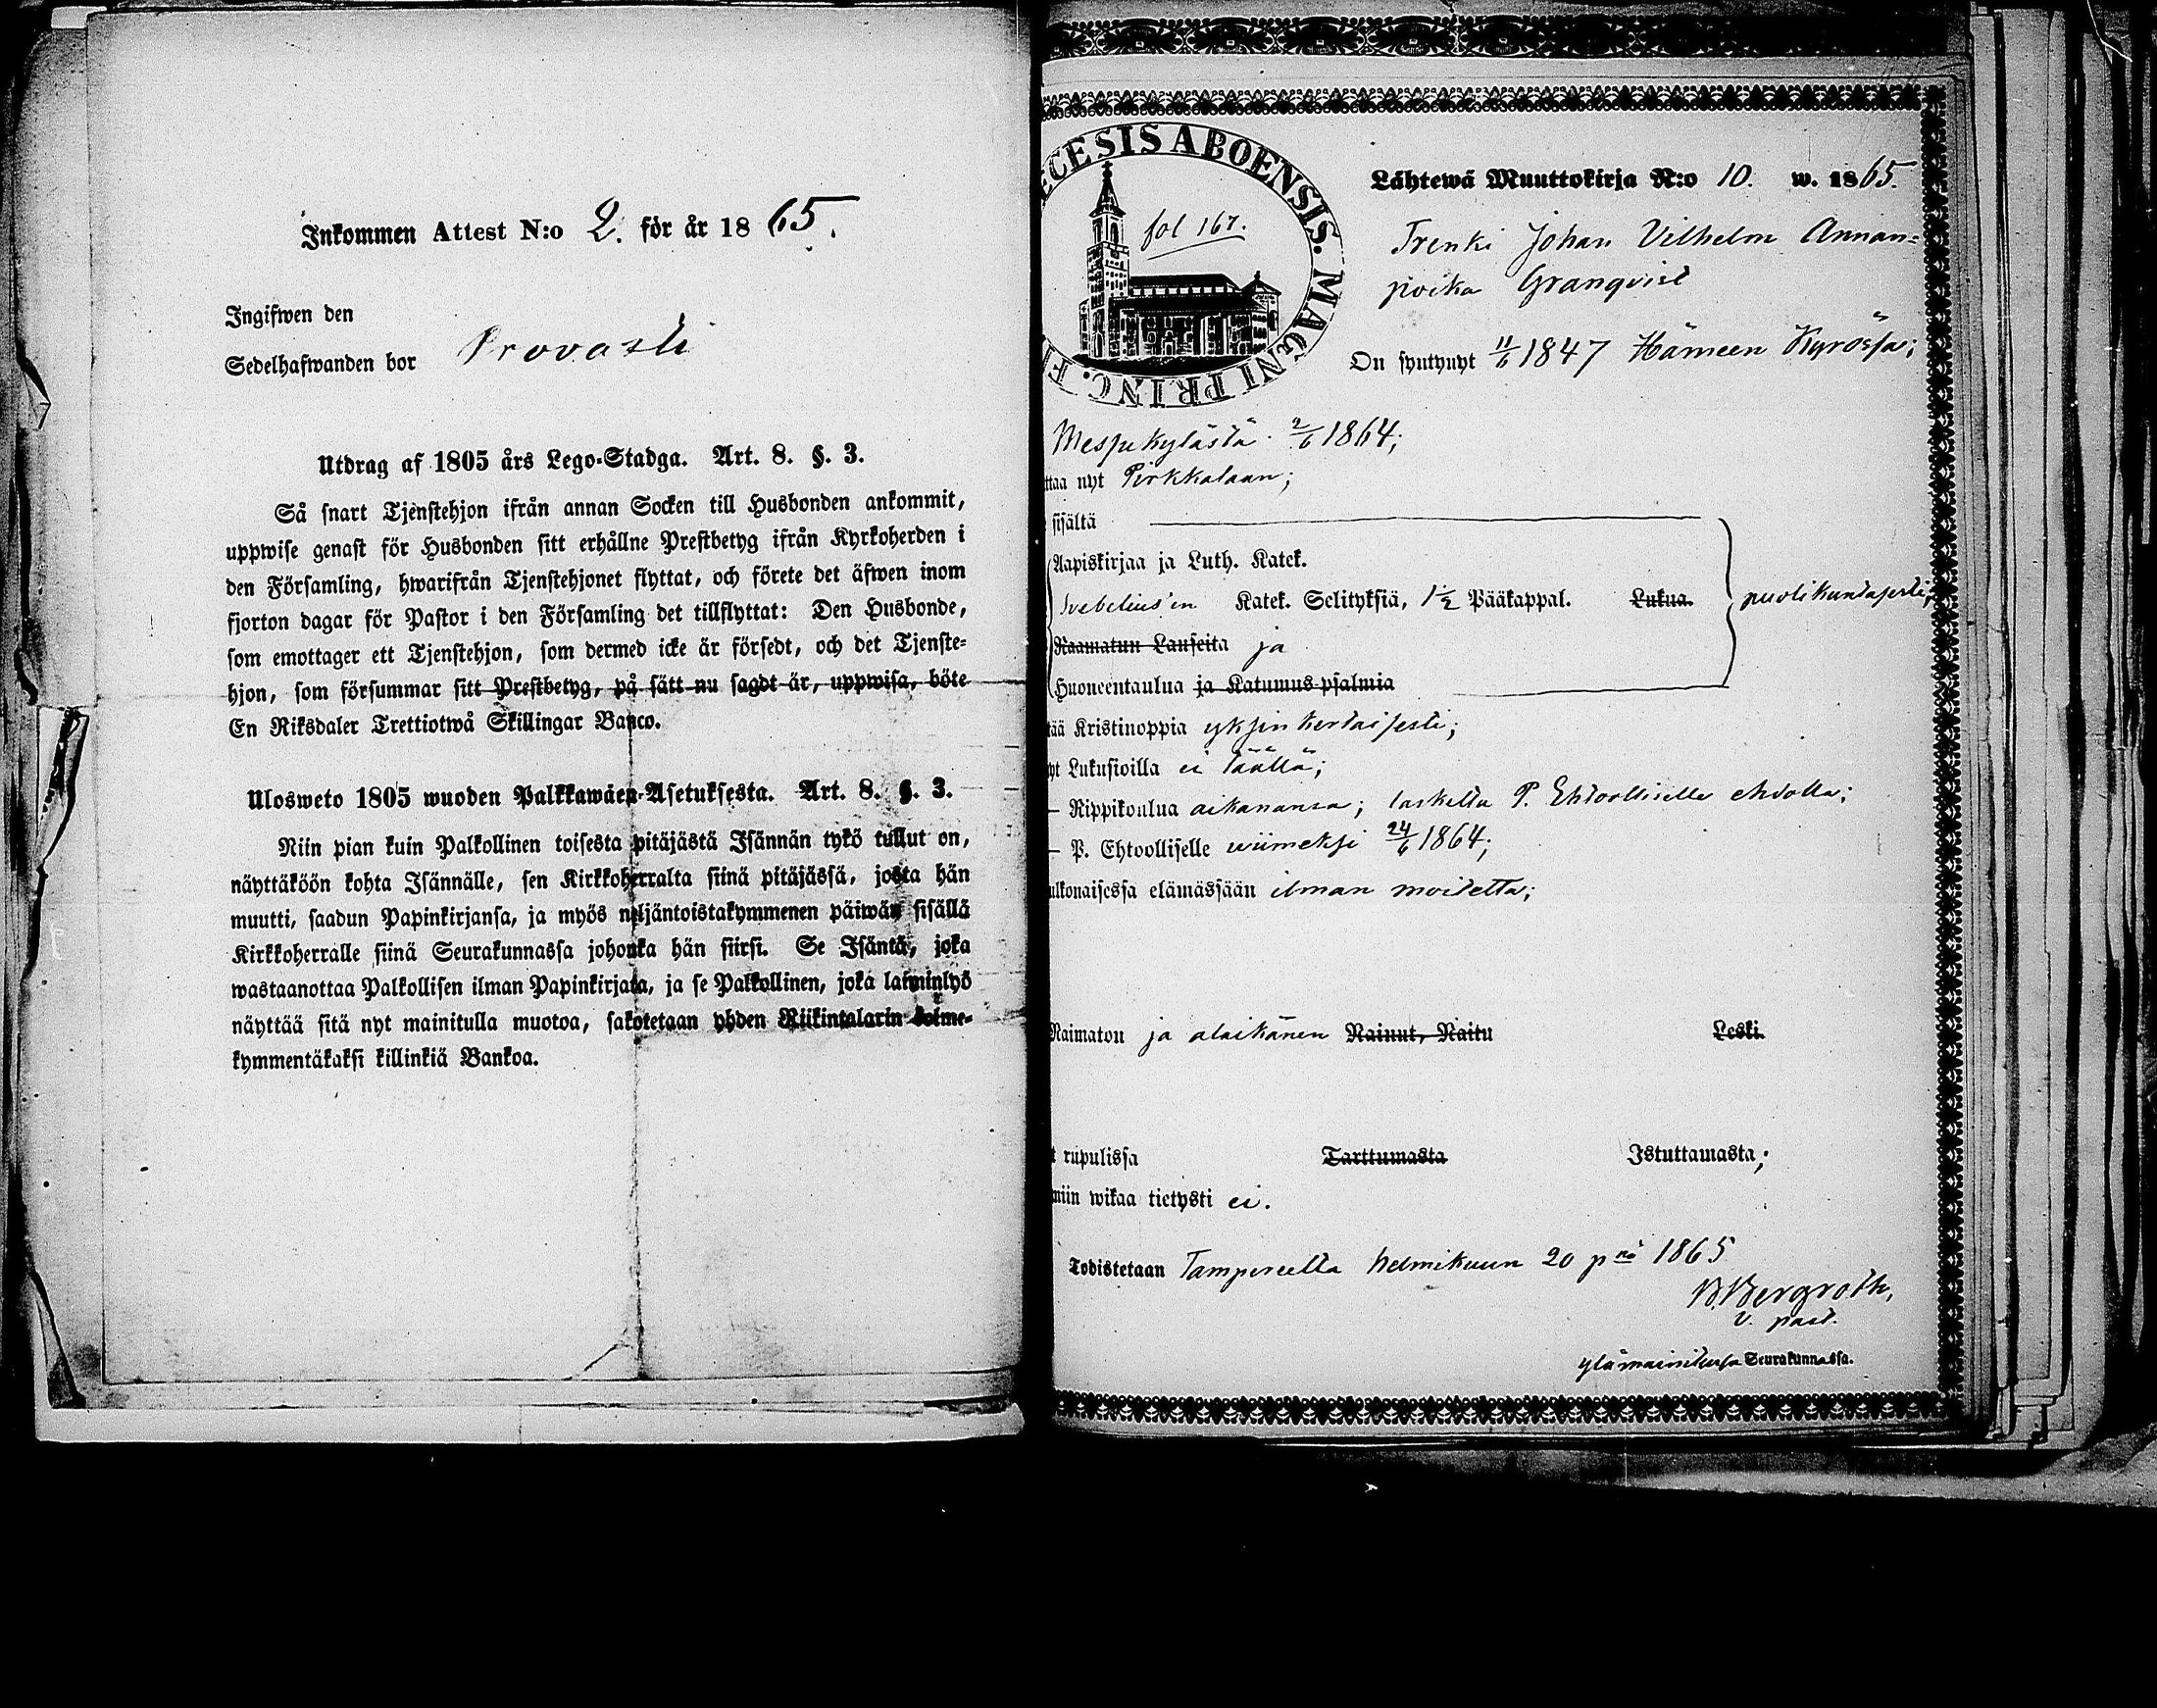 Inkommen Attest N:o 2. för år 1865.
Ingifwen den
Sedelhafwanden bor Provasti
Utdrag af 1805 års Lego-Stadga. Art. 8. §. 3.
Så snart Tjenstehjon ifrån annan Socken till Husbonden ankommit,
uppwise genast för Husbonden sitt erhållne Prestbetyg ifrån Kyrkoherden i
den Församling, hwarifrån Tjenstehjonet flyttat, och förete det äfwen inom
fjorton dagar för Pastor i den Församling det tillflyttat: Den Husbonde,
som emottager ett Tjenstehjon, som dermed icke är försedt, och det Tjenste-
hjon, som försummar sitt Prestbetyg, på sätt nu sagdt är, uppwisa, böte
En Riksdaler Trettiotwå Skillingar Banco.
Ulosweto 1805 wuoden Palkkawäen-Asetuksesta. Art. 8. §. 3.
Niin pian kuin Palkollinen toisesta pitäjästä Isännän tykö tullut on,
näyttäköön kohta Isännälle, sen Kirkkoherralta siinä pitäjässä, josta hän
muutti, saadun Papinkirjansa, ja myös neljäntoistakymmenen päiwän sisällä
Kirkkoherralle siinä Seurakunnassa johonka hän siirsi. Se Isäntä, joka
wastaanottaa Palkollisen ilman Papinkirjata, ja se Palkollinen, joka laiminlyö
näyttää sitä nyt mainitulla muotoa, sakotetaan yhden Riikintalarin kolme-
kymmentäkaksi killinkiä Bankoa.
ECESIS ABOENSIS. MAGNI PRINC. F
fol 167.
Lähtewä Muuttokirja N:o 10. w. 1865.
Trenki Johan Vilhelm Annan-
poika Granqvist
On syntynyt 11/6 1847 Hämeen Kyrössa;
Mespu kylästä 2/6 1864;
ttaa nyt Pirkkalaan;
sisältä
Aapiskirjaa ja Luth. Katek.
Svebelius'en Katek. Selityksiä, 1 1/2 Pääkappal. Lukua. puolikundasesti;
Raamatun Lauseita ja
Huoneentaulua ja Katumus-psalmia
tää Kristinoppia yksinkertaisesti;
yt Lukusioilla ei täällä;
— Rippikoulua aikanansa; laskettu P. Ehtoolliselle ehdolla;
— P. Ehtoolliselle wiimeksi 24/6 1864;
ulkonaisessa elämässään ilman moitetta;
Naimaton ja alaikänen Nainut, Naitu Leski.
t rupulissa Tarttumasta Istuttamasta;
niin wikaa tietysti ei.
Todistetaan Tampereella helmikuun 20 pnä 1865
B. Bergroth,
v. past.
ylämainitussa Seurakunnassa.